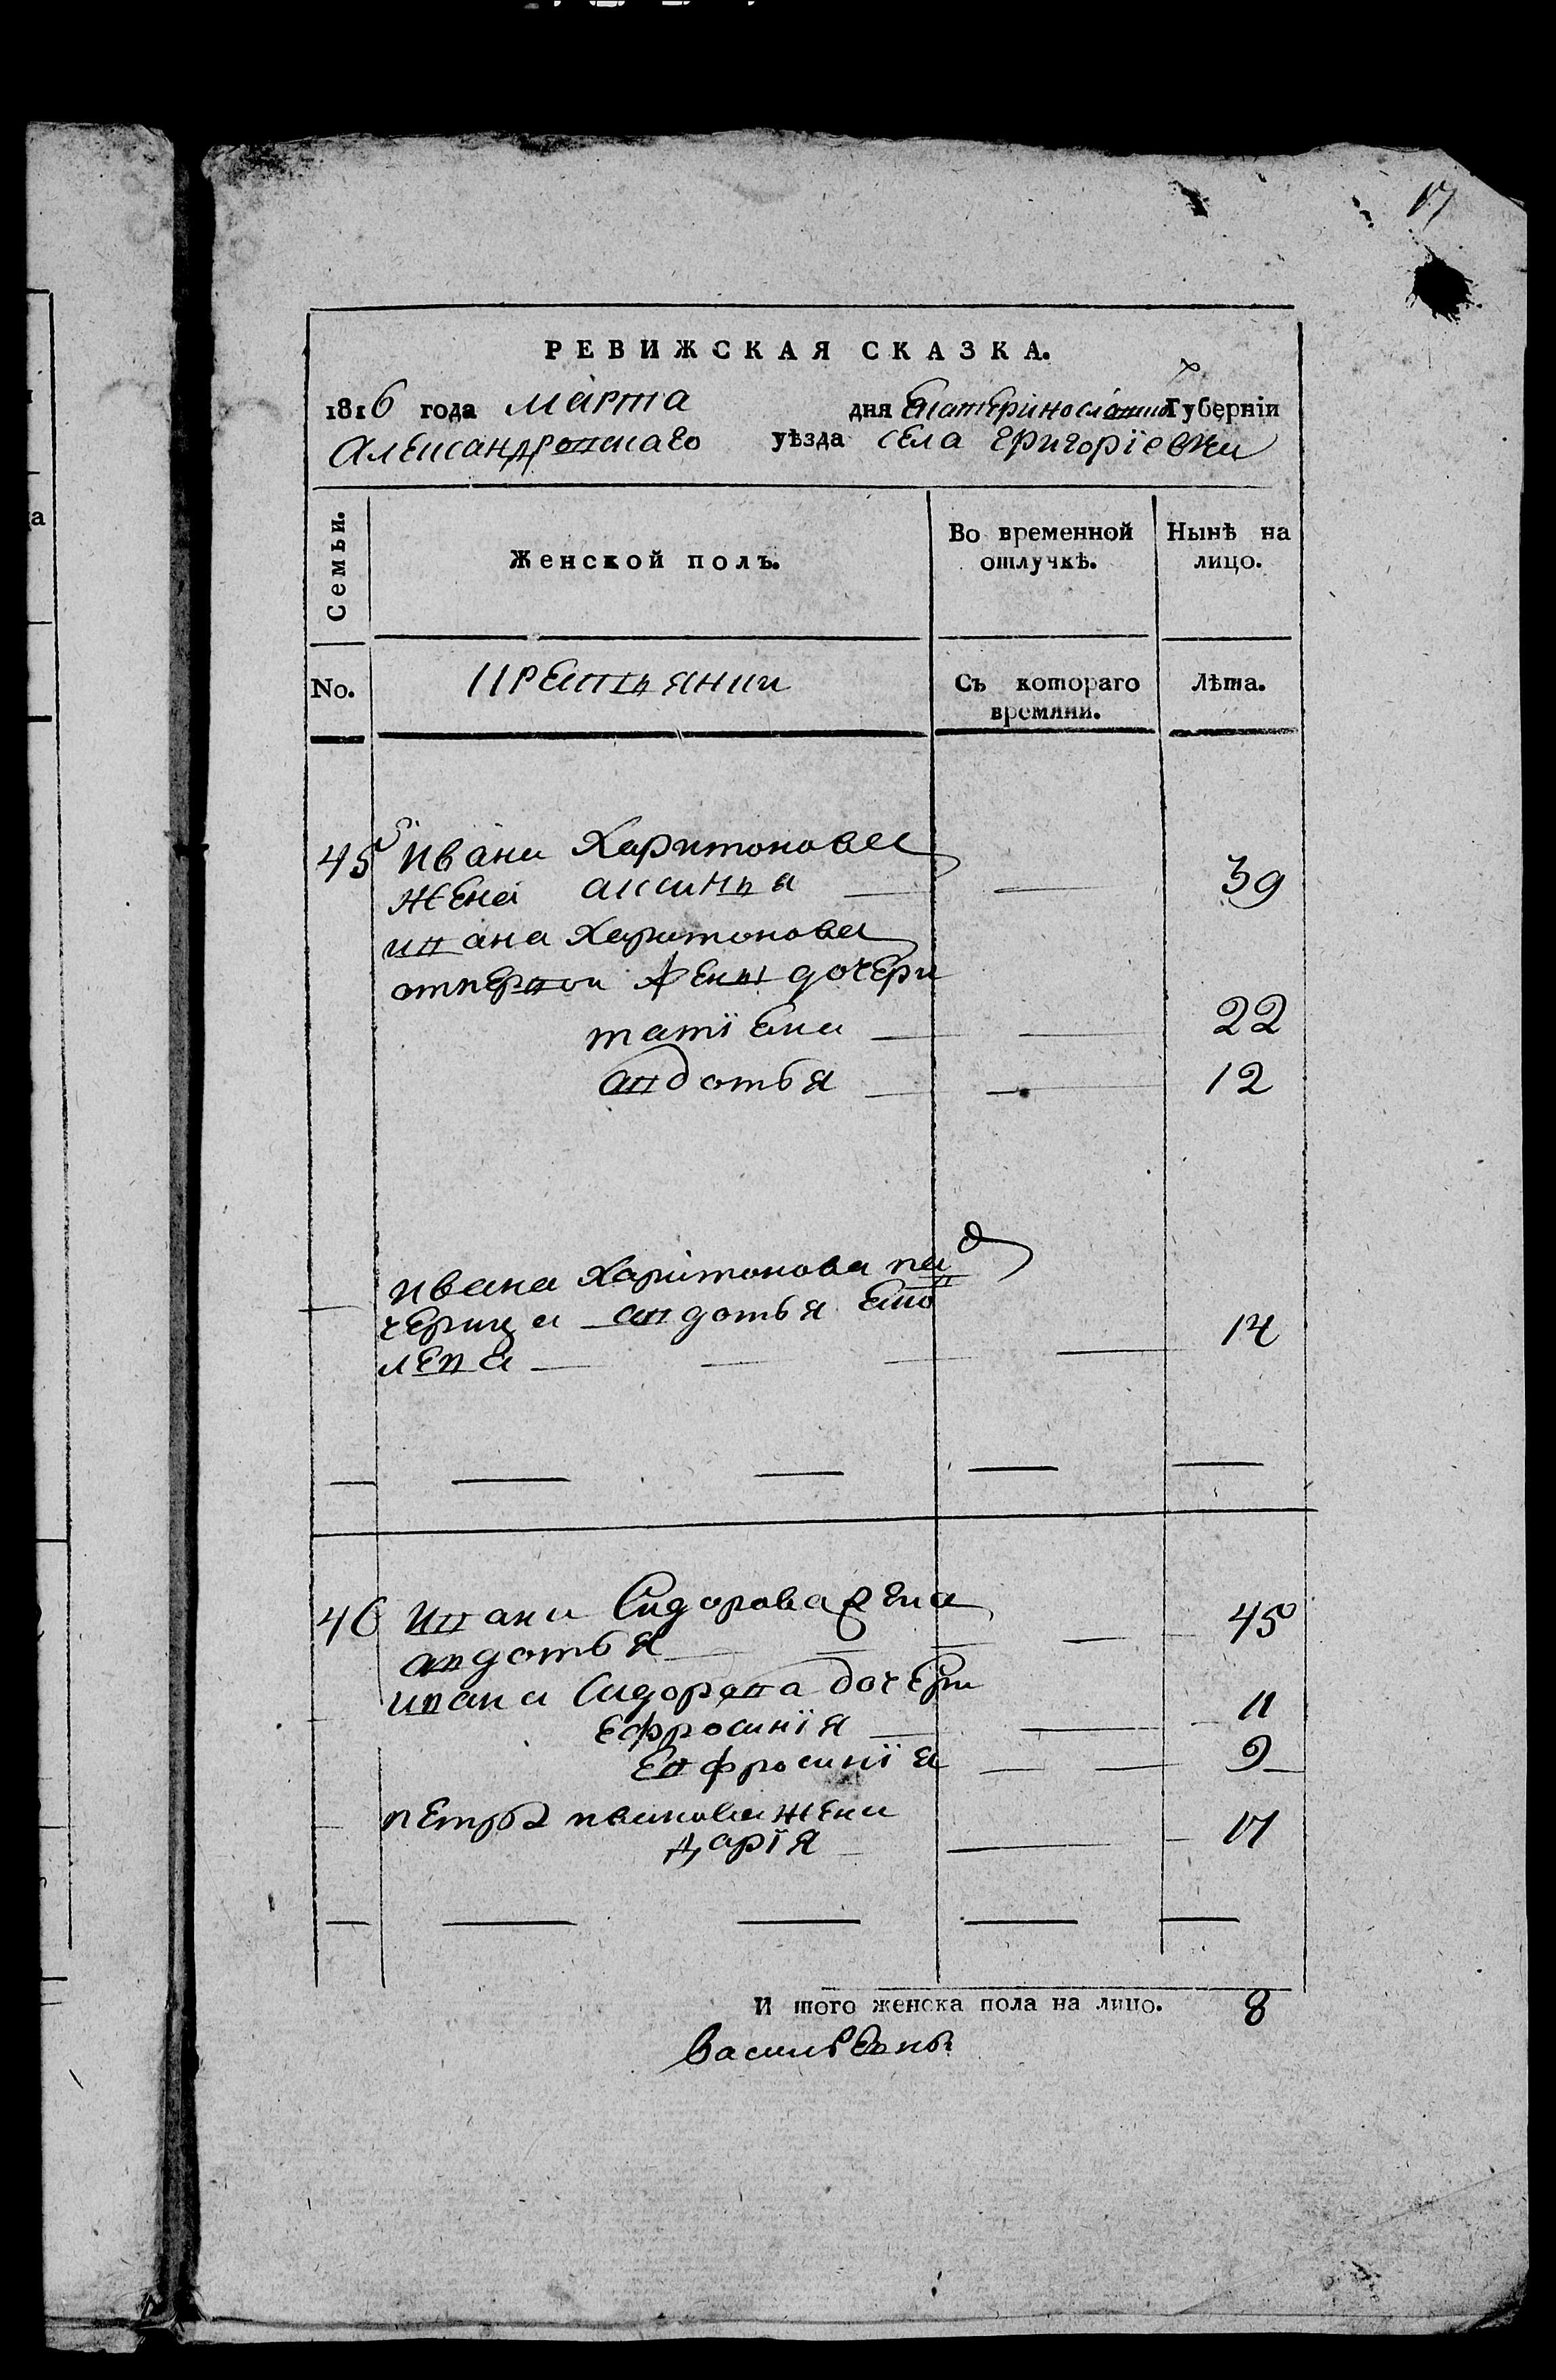 17
РЕВИЖСКАЯ СКАЗКА.
1816 года марта дня Екатеринославской Губерніи
Александровскаго уѣзда села Григоріевки
Семьи.
Женской полъ.
Во временной отлучкѣ.
Нынѣ на лицо.
No.
крестьянки
Съ котораго времяни.
Лѣта.
45 Ивана Харитонова
жена аксинья 39
ивана Харитонова
отпервой жены дочери
татіана 22
авдотья 12
ивана Харитонова пад
черица авдотья Яко
лева 14
46 Ивана Сидорова жена
авдотья 45
ивана Сидорова дочери
ефросинія 11
Евфросинія 9
петра иванова жена
дарія 17
И того женска пола на лицо. 8